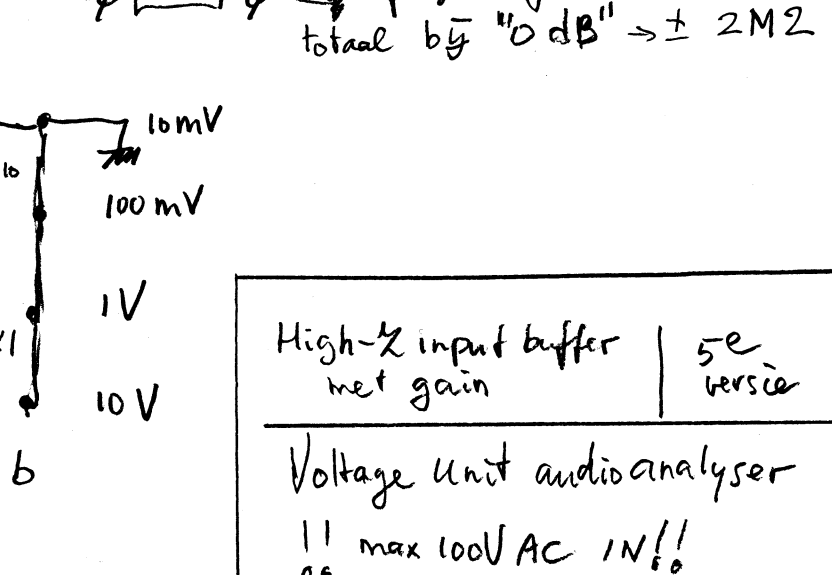 totaal bij "0 dB" → ± 2M2
10mV
10
100mV
1V
10V
b
High-Z input buffer
met gain
5e
versie
Voltage Unit audioanalyser
!! max 100V AC IN!!